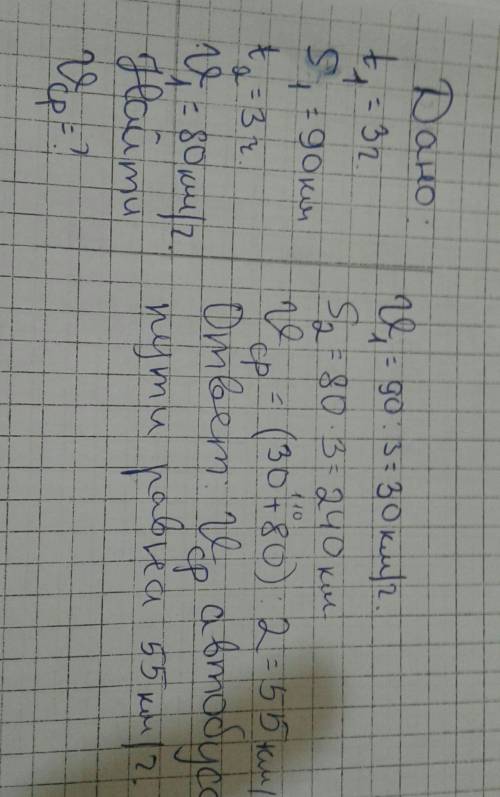 Дано:
t₁ = 3г.
S₁ = 90км
t₂ = 3г.
v₁ = 80км/г.
Найти
v ср = ?
v₁ = 90 : 3 = 30 км/г.
S₂ = 80 · 3 = 240 км
110
v ср = (30 + 80) : 2 = 55 км/
Ответ: v ср автобуса
пути равна 55 км/г.